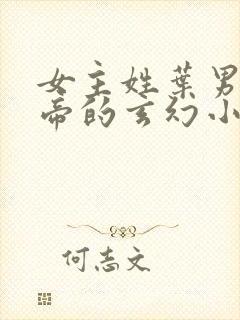 女主姓葉男
帝的玄幻小
何志文